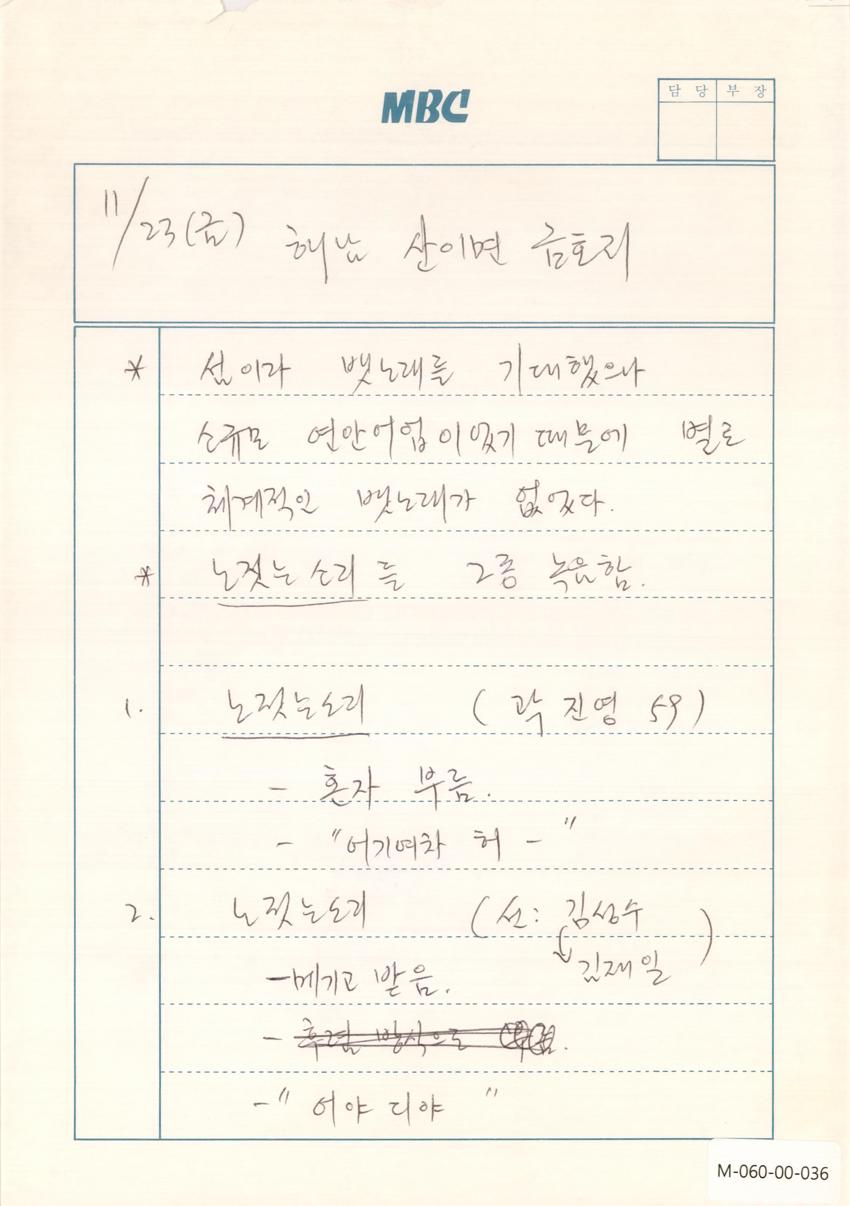 MBC
담 당 부 장
11/23(금) 해남 산이면 금호리
* 섬이라 뱃노래를 기대했으나
소규모 연안어업이었기 때문에 별로
체계적인 뱃노래가 없었다.
* 노젓는소리를 2종 녹음함.
1. 노젓는소리 (곽진영 59)
- 혼자 부름.
- "어기여차 허 - "
2. 노젓는소리 (선: 김성수
김재일)
- 메기고 받음.
- 후렴 방식으로
- "어야 디야 "
M-060-00-036